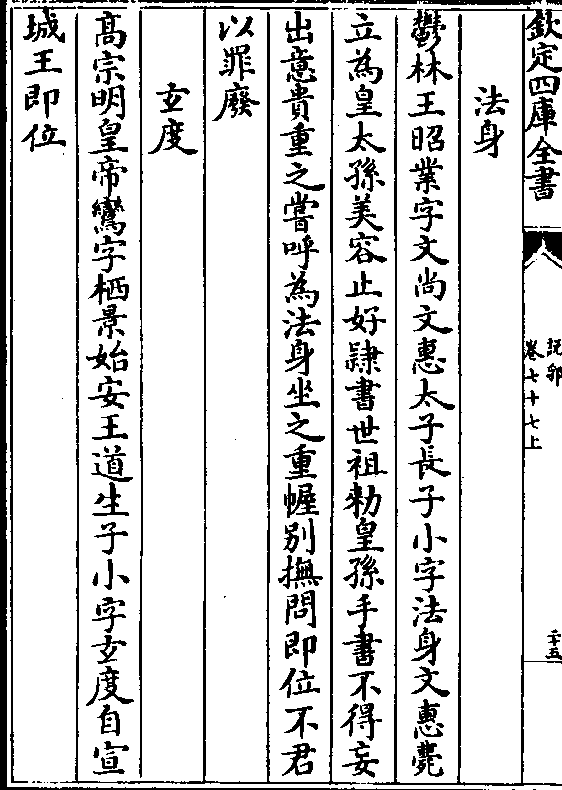 欽定四庫全書
說郛
卷七十七上
二十五
法身
鬱林王昭業字文尚文惠太子長子小字法身文惠薨
立為皇太孫美容止好隸書世祖勑皇孫手書不得妄
出意貴重之嘗呼為法身坐之重幄別撫問即位不君
以罪廢
玄度
髙宗明皇帝鸞字栖景始安王道生子小字玄度自宣
城王即位